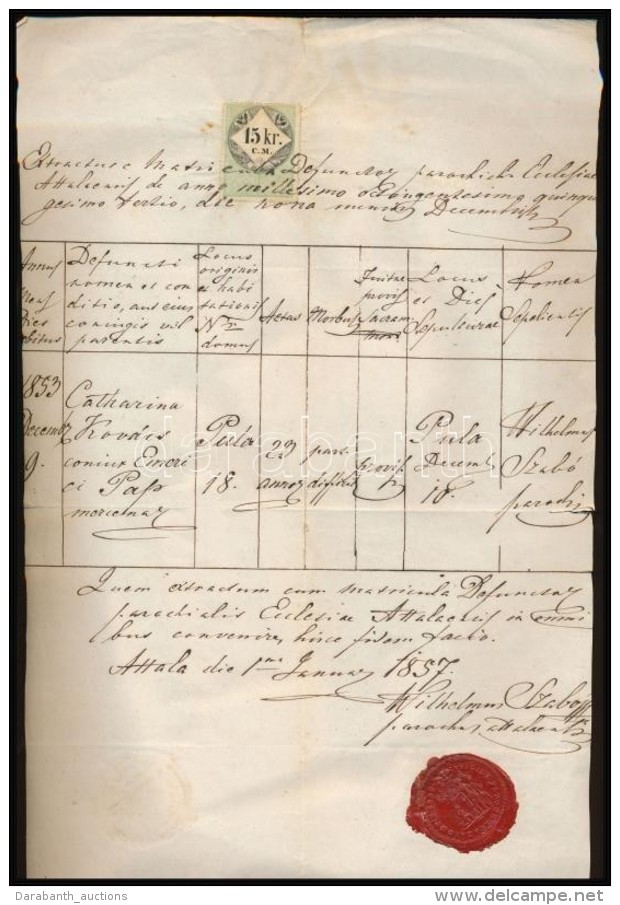 15 kr.
C.M.
Extractus e Matricula Defunctor parochialis Ecclesiae
Attalaensis de anno millesimo octingentesimo quinqua
gesimo tertio, die nona mensis Decembris
Annus
Mens
Dies
obitus
Defuncti
nomen et con
ditio, aut ejus
conjugis vel
parentis
Locus
originis
et habi
tationis
Nr
domus
Aetas
Morbus
provis
Sacram
Locus
et Dies
Sepulturae
Nomen
Sepelientis
1853
Decemb
9.
Catharina
Kovács
coniux Emeri
ci Pap
mercenar
Pula
18.
23
annor
par.
difficil
provis
Pula
Decemb
Wilhelmus
Szabó
parochus
Quem extractum cum matricula Defunctor
parochialis Ecclesiae Attalaensis in omni
bus convenire, hisce fidem facio.
Attala die 1ma Januar 1857.
Wilhelmus Szabó
parochus attalaensis
darabanth
Darabanth_auctions